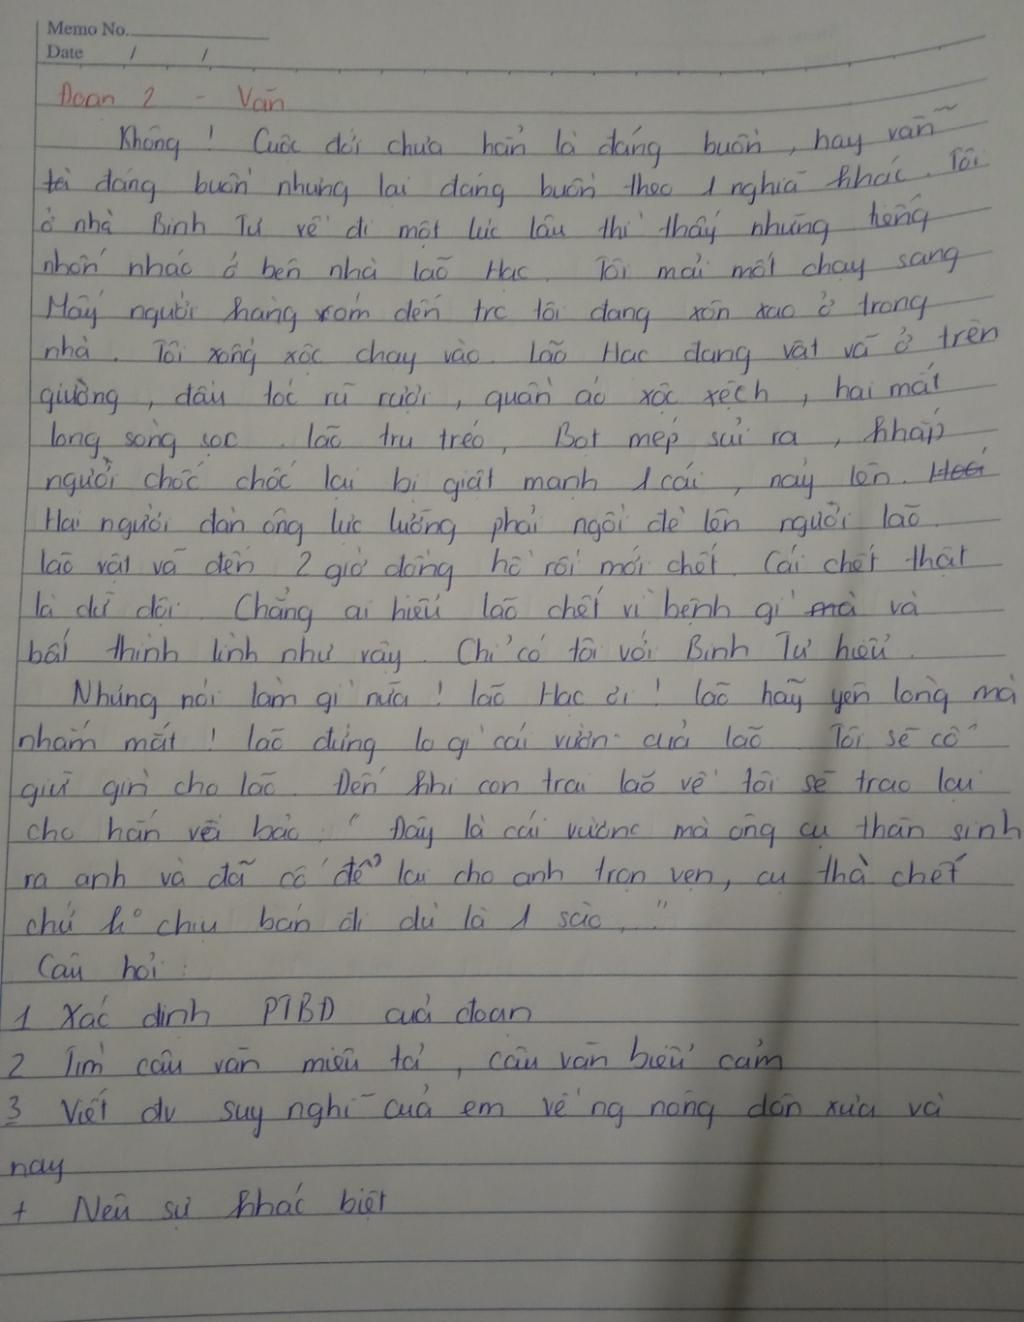 Memo No.
Date / /
Đoạn 2 - Văn
Không ! Cuộc đời chưa hẳn là đáng buồn, hay vẫn
đáng buồn nhưng lại đáng buồn theo 1 nghĩa khác. Tôi
ở nhà Binh Tư về đi một lúc lâu thì thấy những tiếng
nhốn nháo ở bên nhà lão Hạc. Tôi mải mốt chạy sang
Mấy người hàng xóm đến trc tôi đang xôn xao ở trong
nhà. Tôi xồng xộc chạy vào. Lão Hạc đang vật vã ở trên
giường, đầu tóc rũ rượi, quần áo xộc xệch, hai mắt
long sòng sọc. Lão tru tréo, Bọt mép sùi ra, khắp
người chốc chốc lại bị giật mạnh 1 cái, nảy lên.
Hai người đàn ông lực lưỡng phải ngồi đè lên người lão.
Lão vật vã đến 2 giờ đồng hồ rồi mới chết. Cái chết thật
là dữ dội. Chẳng ai hiểu lão chết vì bệnh gì mà và
bất thình lình như vậy. Chỉ có tôi với Binh Tư hiểu.
Nhưng nói làm gì nữa ! Lão Hạc ơi ! Lão hãy yên lòng mà
nhắm mắt ! Lão đừng lo gì cái vườn của lão. Tôi sẽ cố
giữ gìn cho lão. Đến khi con trai lão về tôi sẽ trao lại
cho hắn và bảo : " Đây là cái vườn mà ông cụ thân sinh
ra anh và đã cố để lại cho anh trọn vẹn, cụ thà chết
chứ ko chịu bán đi dù là 1 sào..."
Câu hỏi :
1 Xác định PTBĐ của đoạn
2 Tìm câu văn miêu tả, câu văn biểu cảm
3 Viết đv suy nghĩ của em về ng nông dân xưa và
nay
+ Nêu sự khác biệt